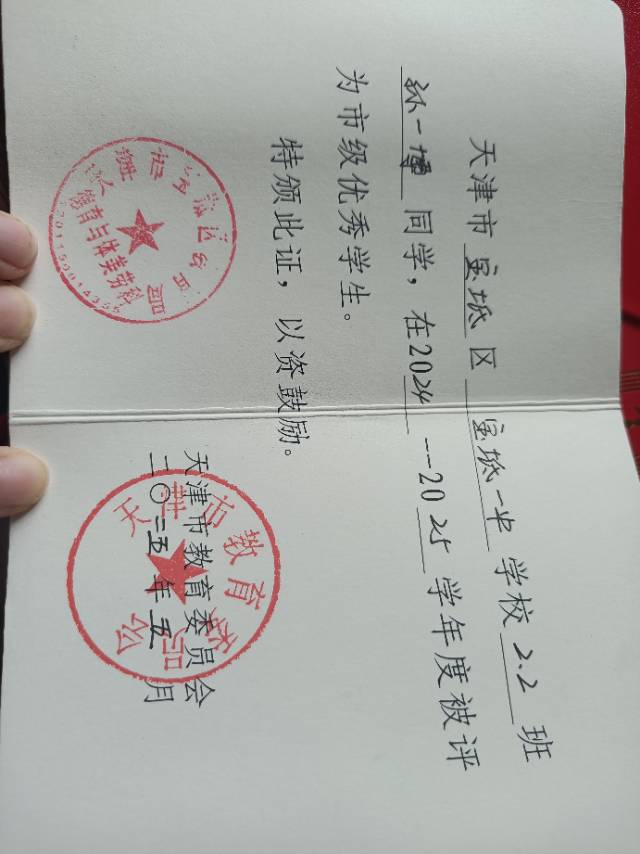 天津市宝坻区宝坻一中学校2.2班
孙一博同学，在2024--2025学年度被评
为市级优秀学生。
特颁此证，以资鼓励。
天津市教育委员会
二〇二五年五月
天津市教育委员会
德育与体美劳科